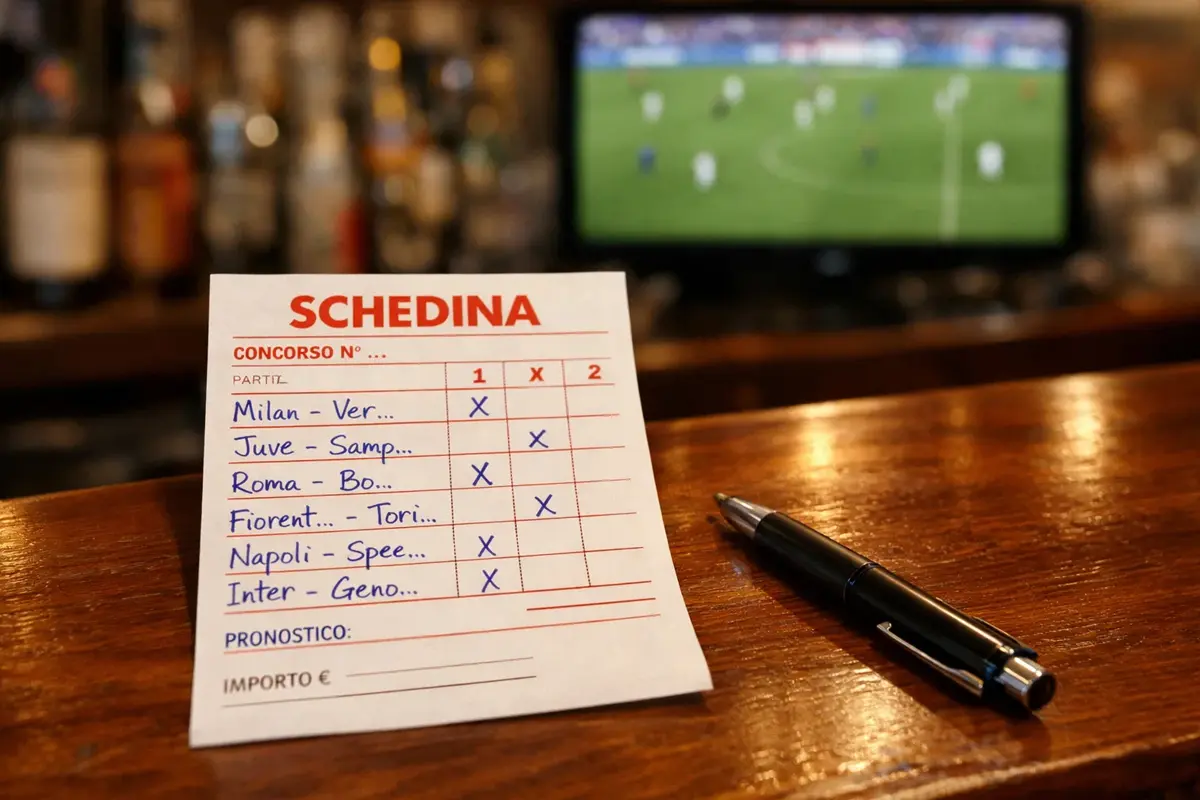 SCHEDINA
CONCORSO N° ...
1 X 2
Milan - Ver... X
Juve - Samp... X
Roma - Bo... X
Fiorent... - Tori... X
Napoli - Spee... X
Inter - Geno... X
PRONOSTICO:
IMPORTO €